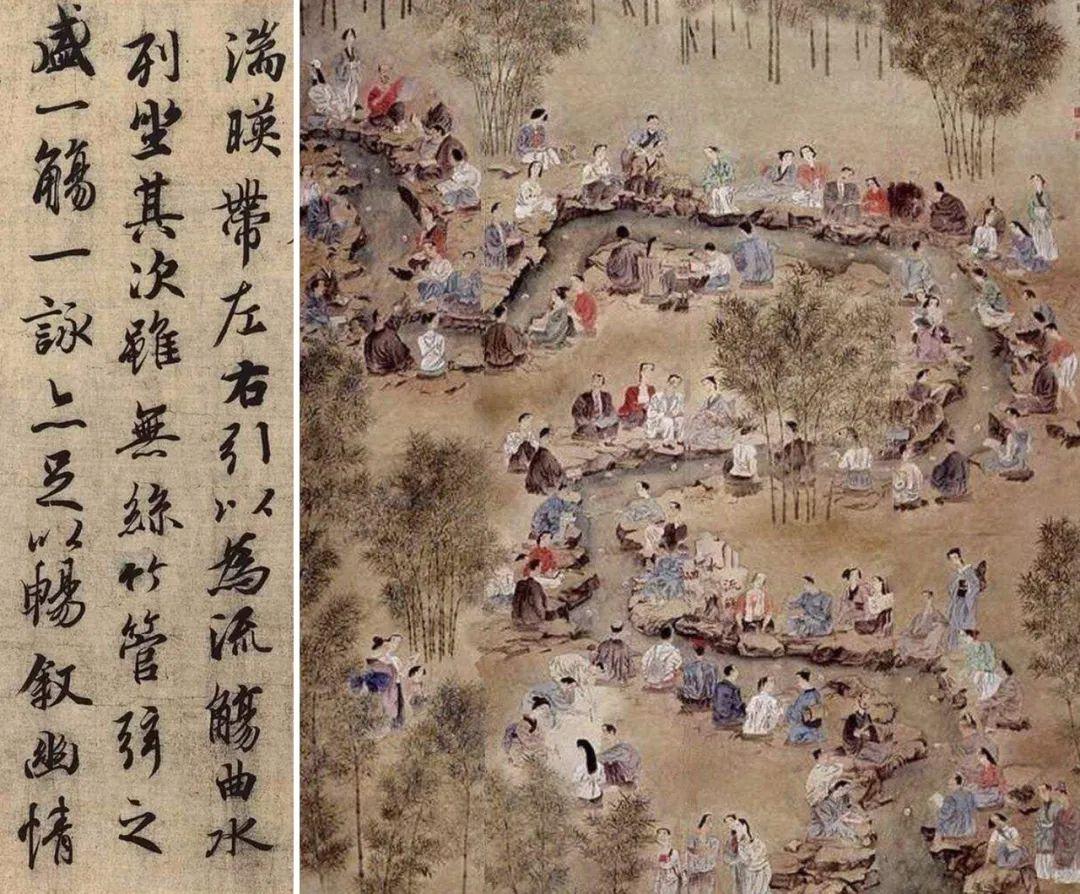 湍暎帶左右引以為流觴曲水
列坐其次雖無絲竹管弦之
盛一觴一詠亦足以暢叙幽情